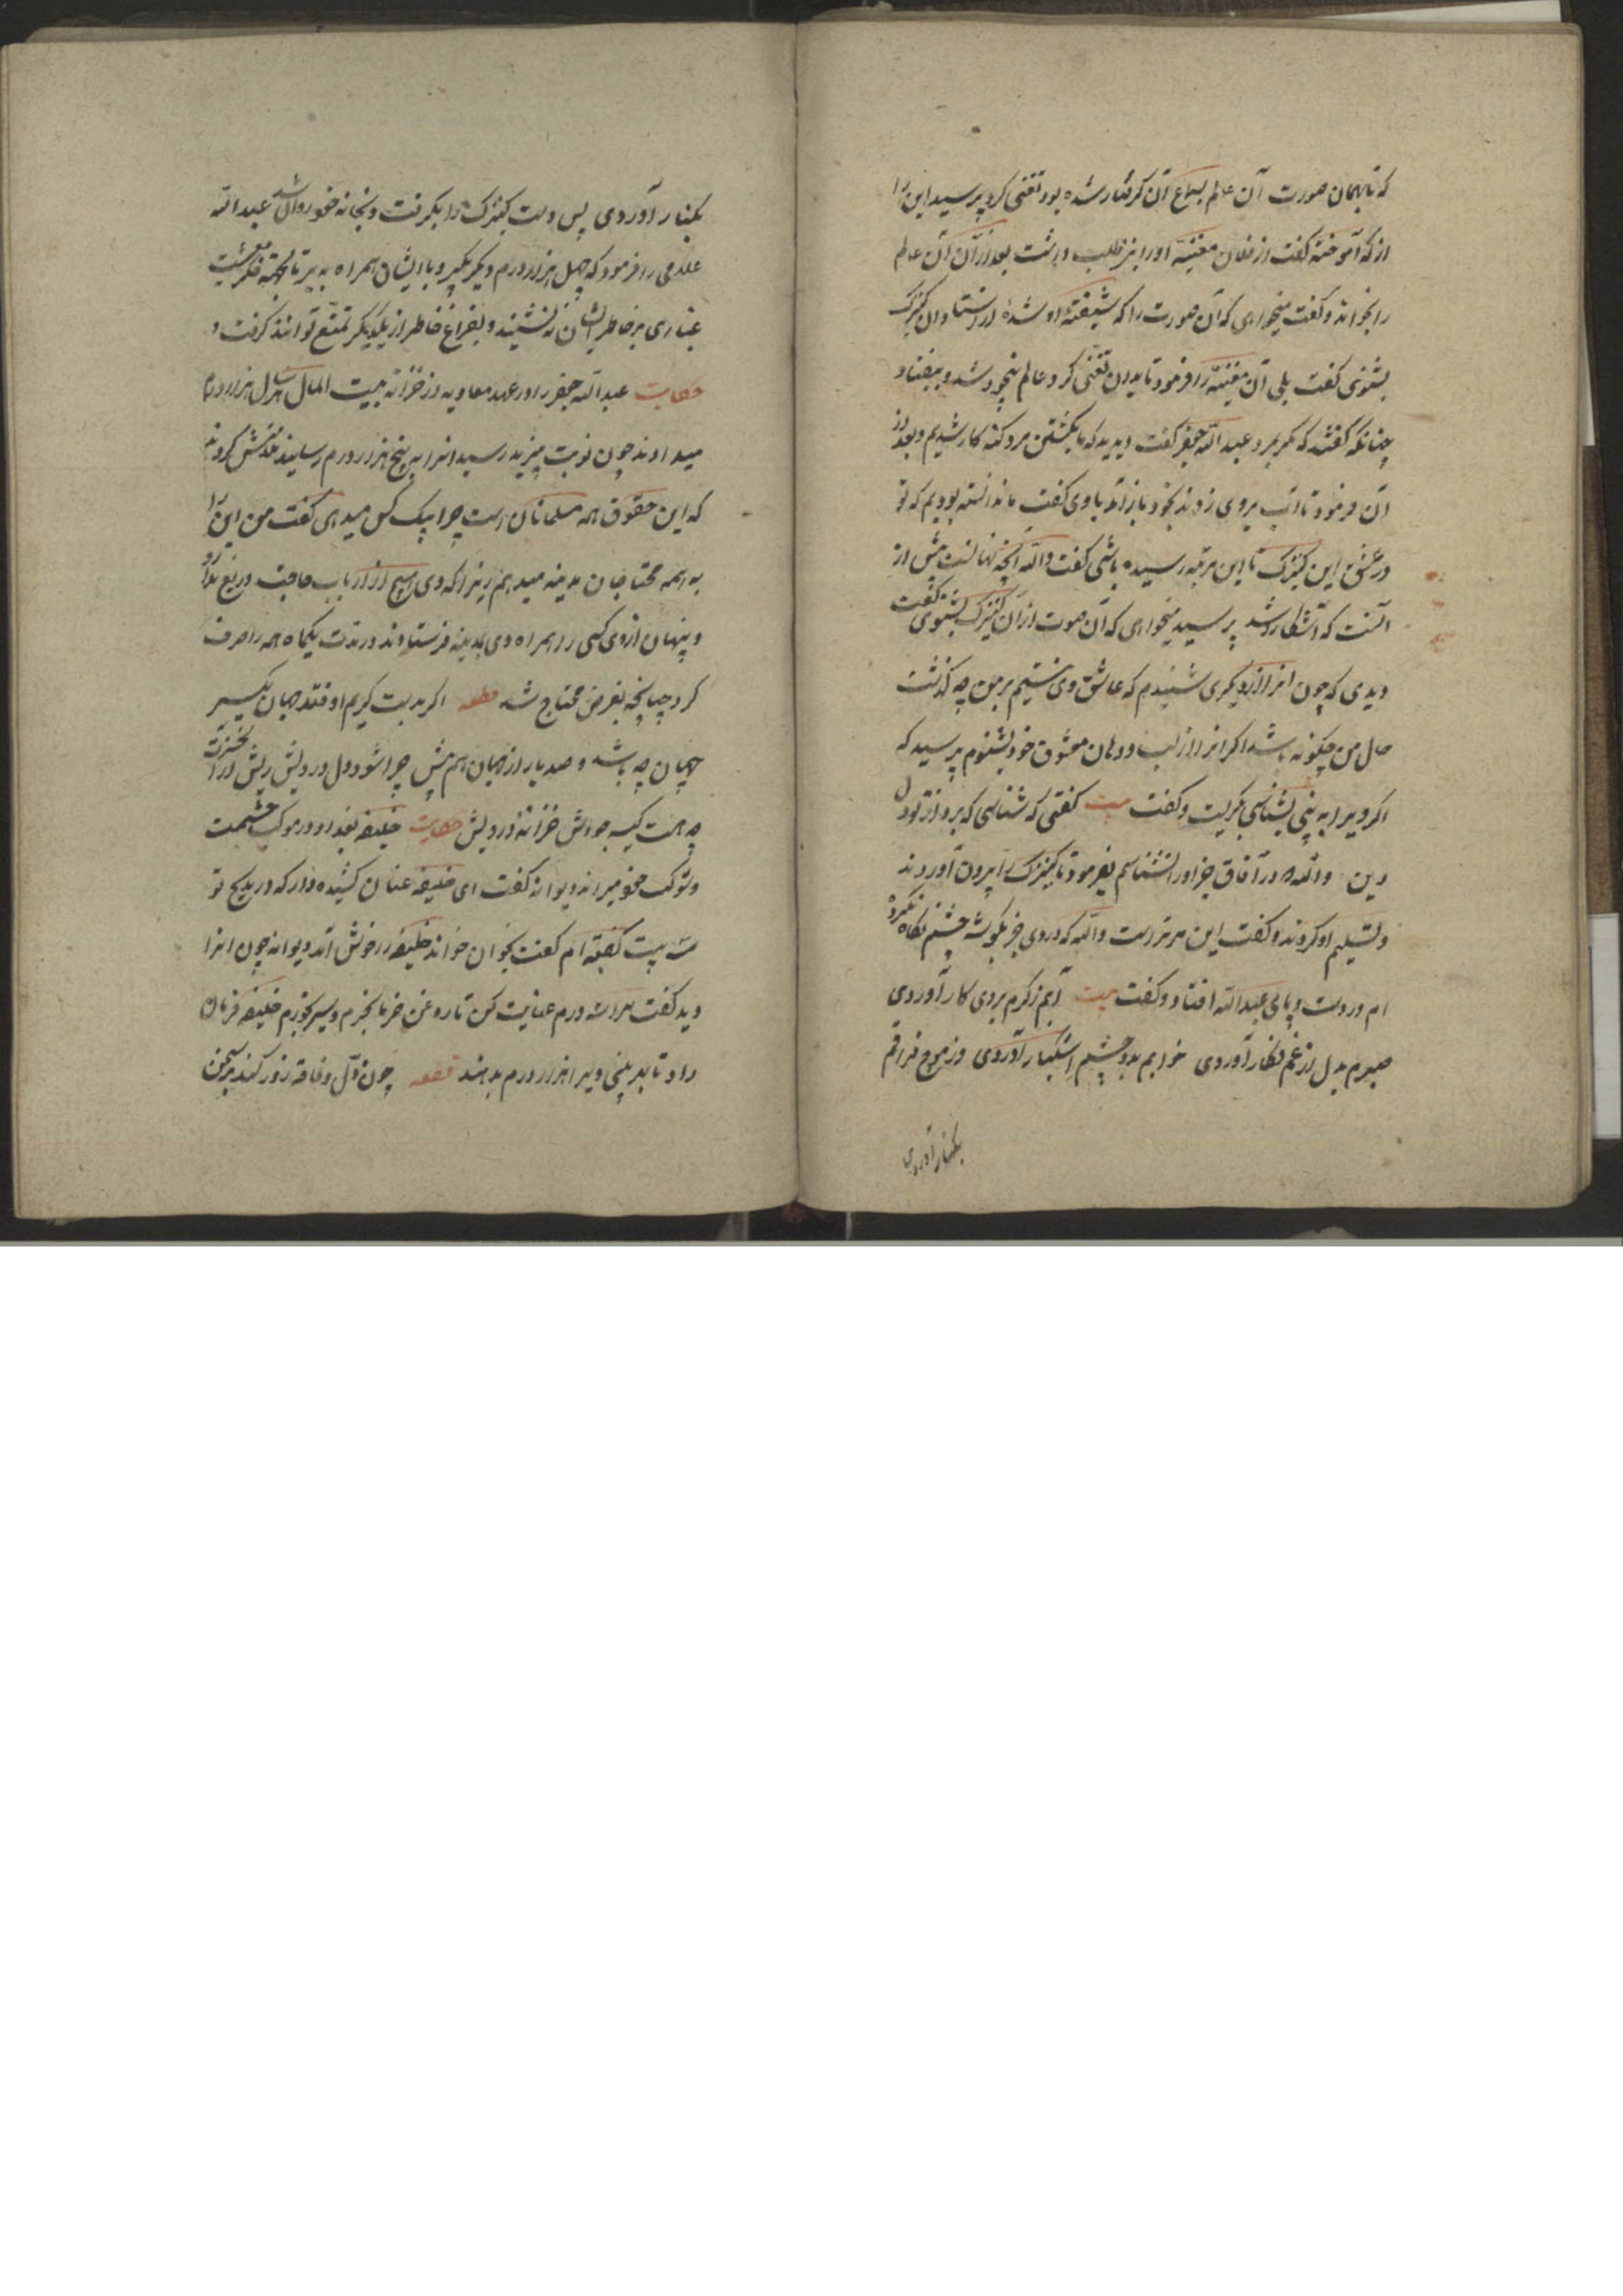 که تا بهمان صورت آن عالم بسماع آن گرفتار شده بود تغنی کرد پرسید این را
از که آموخته گفت از فلان مغنیه اورا نیز طلب داشت بعد از آن آن عالم
را بخواند و گفت میخواهی که آن صورت را که شیفته او شده از استاد آن کنیزک
بشنوی گفت بلی آن مغنیه را فرمود تا بدان تغنی کرد عالم بیخود شد و بیفتاد
چنانکه گفتند که مگر بمرد عبد الله جعفر گفت دیدید که ما بکشتن مرد گنه کار شدیم و بعد از
آن فرمود تا آب بروی زدند بخود باز آمد باوی گفت ما ندانسته بودیم که تو
در عشق این کنیزک تا این مرتبه رسیده باشی گفت والله آنچه نهانست بیش از
آنست که آشکارا شد پرسید میخواهی که آن صوت از آن کنیزک بشنوی گفت
دیدی که چون آنرا از دیگری شنیدم که عاشق وی نیستم بر من چه گذشت
حال من چگونه باشد اگر آنرا از لب و دهان معشوق خود بشنوم پرسید که
اگر ویرا به بینی بشناسی بگریست و گفت بیت گفتی که شناسی که برد از تو دل
و دین والله که در آفاق جز اورا نشناسم بفرمود تا کنیزک را بیرون آوردند
و تسلیم او کردند و گفت این مر تراست والله که در وی جز بگوشه چشم نگاه نکرده
ام در دست و پای عبد الله افتاد و گفت بیت آبم ز کرم بروی کار آوردی
صبرم بدل از غم فکار آوردی خوابم بدو چشم اشکبار آوردی وز موج فراقم
بکنار آوردی
بکنار آوردی پس دست کنیزک را بگرفت و بخانه خود روان شد عبد الله
غلامی را فرمود که چهل هزار درم دیگر بگیر و با ایشان همراه به بر تا بجهة فکر معیشت
غباری بر خاطر ایشان نه نشیند و بفراغ خاطر از یکدیگر تمتع توانند گرفت
حکایت عبد الله جعفر را در عهد معاویه از خزانه بیت المال هر سال هزار درم
میدادند چون نوبت بیزید رسید آنرا به پنج هزار درم رسانید ملامتش کردند
که این حقوق همه مسلمانان است چرا بیک کس میدهی گفت من این را
به همه محتاجان مدینه میدهم زیرا که وی هیچ از ارباب حاجت دریغ ندارد
و پنهان از وی کسی را همراه وی بمدینه فرستادند در مدت یکماه همه را صرف
کرد چنانچه بقرض محتاج شد قطعه اگر بدست کریم اوفتد جهان یکسر
جهان چه باشد و صد بار از جهان هم بیش چرا شود دل درویش ریش
چه هست کیسه جودش خزانه درویش حکایت خلیفه بغداد در موکب حشمت
و شوکت خود میراند دیوانه گفت ای خلیفه عنان کشیده دار که در مدیح تو
سه بیت گفته ام گفت بخوان خواند خلیفه را خوش آمد دیوانه چون آنرا
دید گفت مرا سه درم عنایت کن تا روغن خرما بخرم و سیر بخورم خلیفه فرمان
داد تا بهر بیتی ویرا هزار درم بدهند قطعه چون ذل و فاقه زور کند